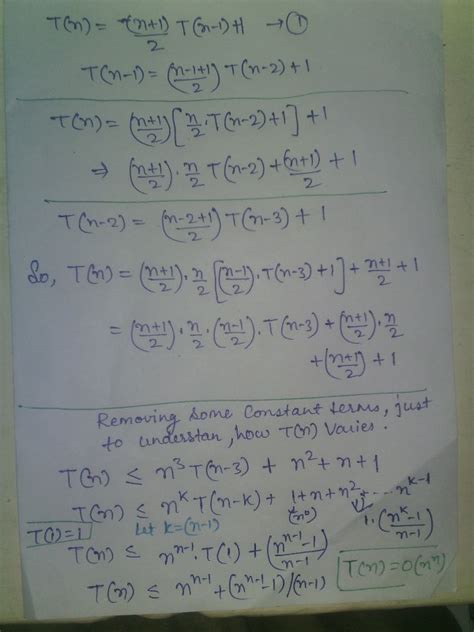 T(n) = (n+1)/2 T(n-1)+1 → ①
T(n-1) = (n-1+1)/2 T(n-2)+1
T(n) = (n+1)/2 [n/2 . T(n-2)+1] + 1
⇒ (n+1)/2 . n/2 T(n-2) + (n+1)/2 + 1
T(n-2) = (n-2+1)/2 T(n-3) + 1
So, T(n) = (n+1)/2 . n/2 [(n-1)/2 . T(n-3) + 1] + n+1/2 + 1
= (n+1)/2 . n/2 . (n-1)/2 . T(n-3) + (n+1)/2 . n/2
+ (n+1)/2 + 1
Removing some constant terms, just
to understan, how T(n) varies.
T(n) ≤ n³ T(n-3) + n² + n + 1
T(n) ≤ n^k T(n-k) + 1 + n + n² + ... n^k-1
(n⁰)
T(1) = 1
Let k = (n-1)
1. (n^k - 1 / n-1)
T(n) ≤ n^n-1 . T(1) + (n^n-1 - 1 / n-1)
T(n) ≤ n^n-1 + (n^n-1 - 1)/(n-1)
T(n) = O(n^n)